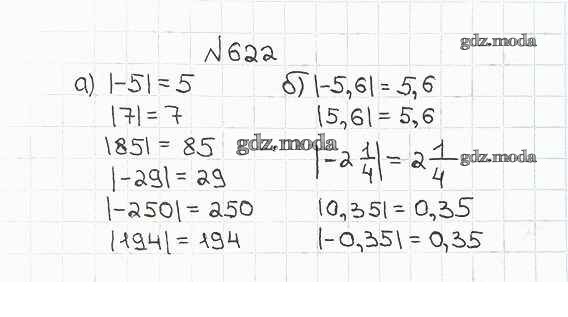 №622
а) |-5| = 5
|7| = 7
|85| = 85
|-29| = 29
|-250| = 250
|194| = 194
б) |-5,6| = 5,6
|5,6| = 5,6
|-2 1/4| = 2 1/4
|0,35| = 0,35
|-0,35| = 0,35
gdz.moda
gdz.moda
gdz.moda